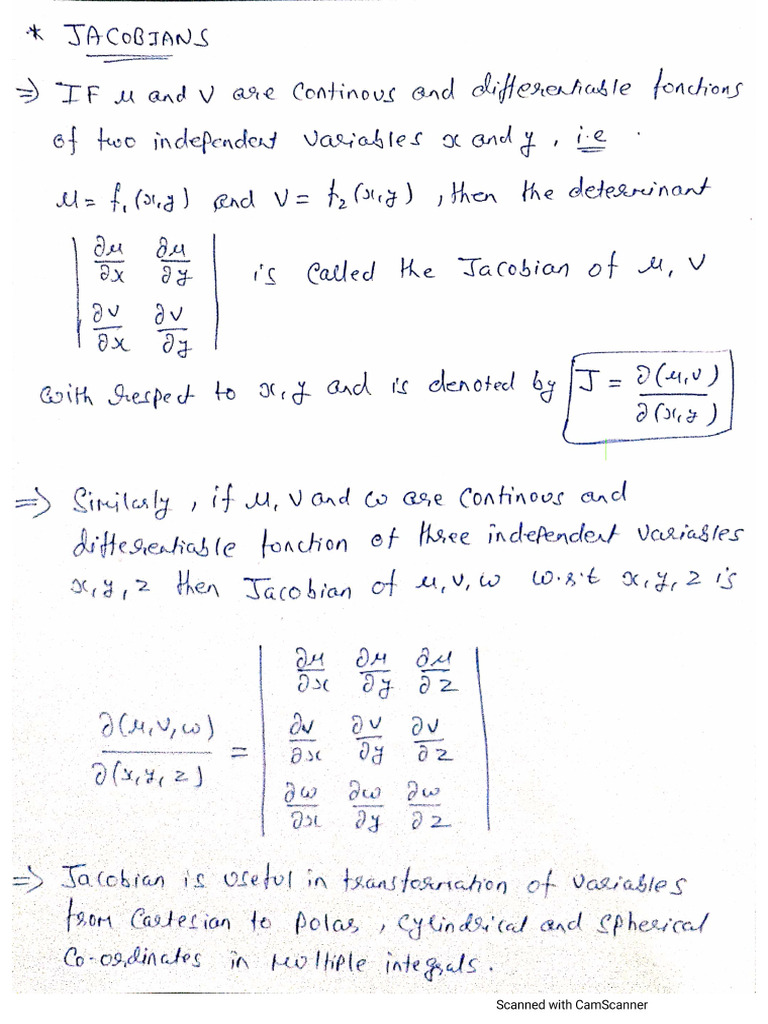 * JACOBIANS
⇒ IF u and v are continous and differentiable fonctions
of two independent variables x and y, i.e.
u = f₁(x,y) and v = f₂(x,y), then the determinant
| ∂u/∂x ∂u/∂y |
| ∂v/∂x ∂v/∂y | is called the Jacobian of u, v
with respect to x, y and is denoted by J = ∂(u,v)/∂(x,y)
⇒ Similarly, if u, v and w are continous and
differentiable fonction of three independent variables
x, y, z then Jacobian of u, v, w w.r.t x, y, z is
∂(u,v,w)/∂(x,y,z) = | ∂u/∂x ∂u/∂y ∂u/∂z |
| ∂v/∂x ∂v/∂y ∂v/∂z |
| ∂w/∂x ∂w/∂y ∂w/∂z |
⇒ Jacobian is useful in transformation of variables
from Cartesian to polar, cylindrical and spherical
co-ordinates in multiple integrals.
Scanned with CamScanner